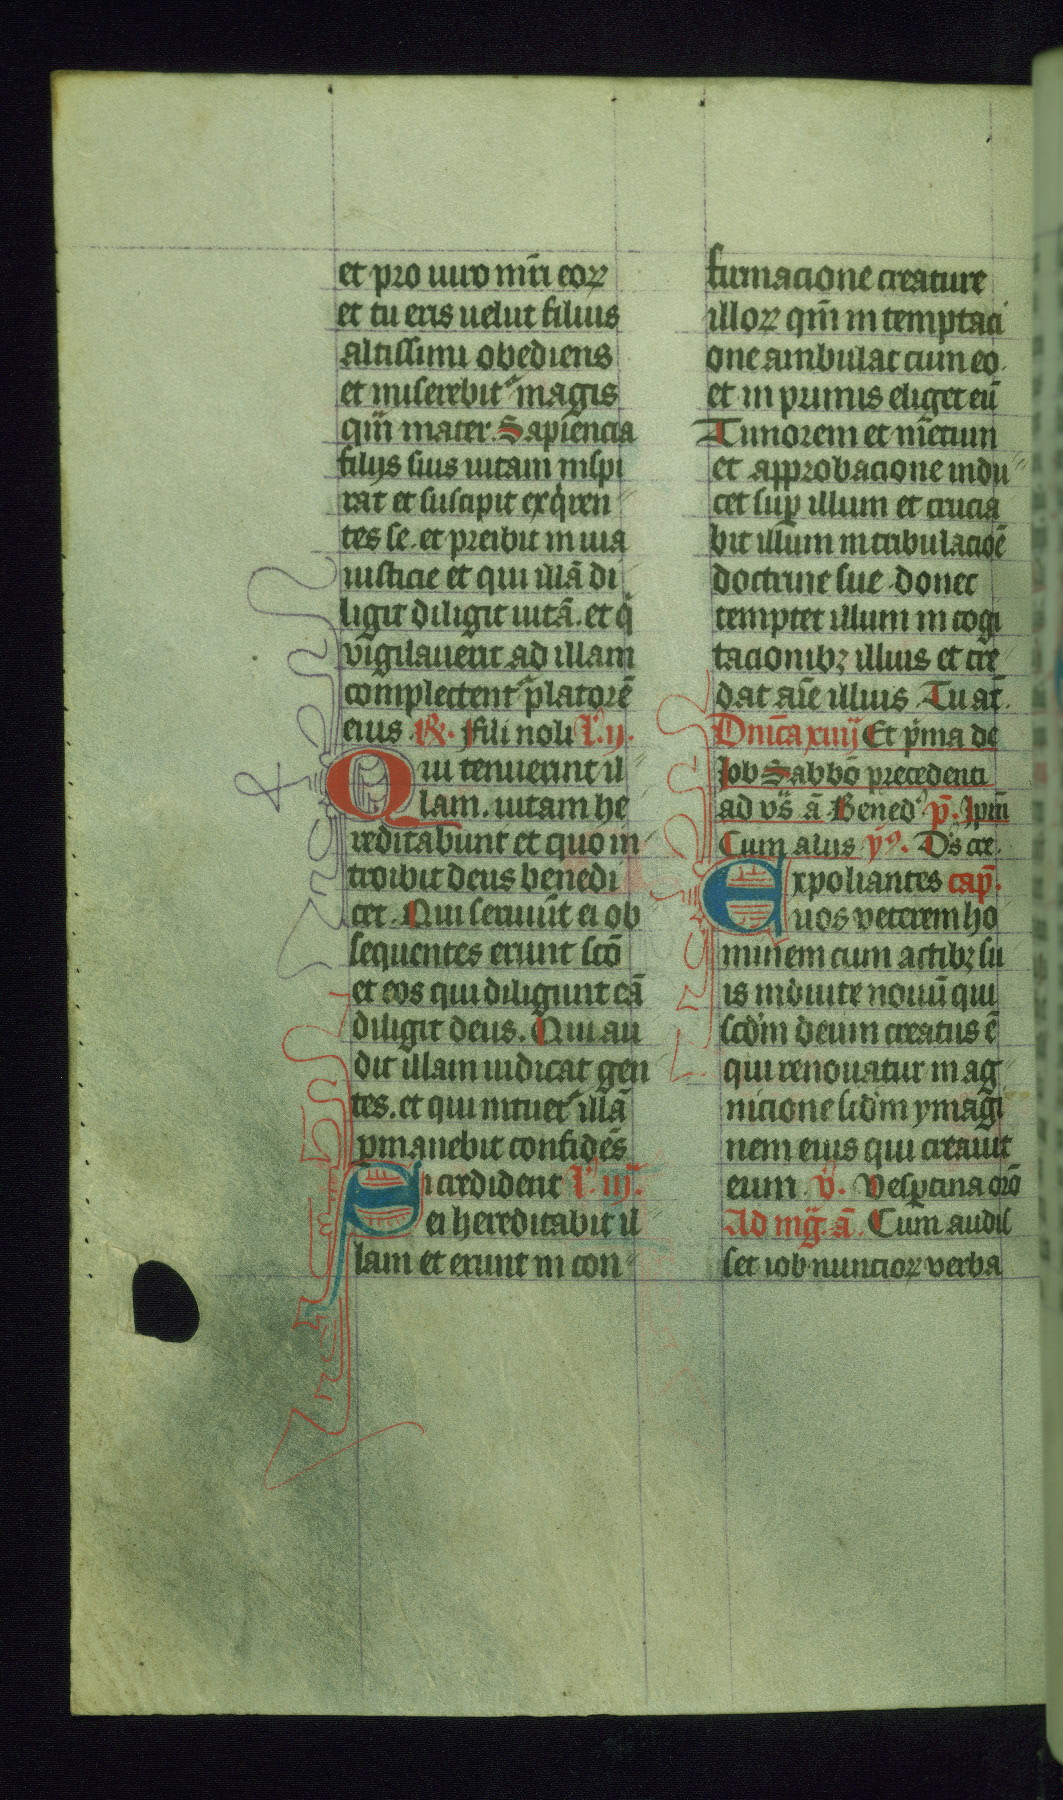 et pro uiro mr̄i eoꝝ
et tu eris uelut filius
altissimi obediens
et miserebit᷑ magis
qͣm mater. Sapiencia
filijs suis uitam inspi
rat et suscipit exqͥren
tes se. et preibit in uia
iusticie et qui illā di
ligit diligit uitā. et qͥ
vigilauerit ad illam
complectent᷑ placorē
eius ℟. Fili noli l᷑. ij.
Qui tenuerint il
lam. uitam he
reditabunt et quo in
troibit deus benedi
cet. Qui seruiūt ei ob
sequentes erunt scō
et eos qui diligunt eā
diligit deus. Qui au
dit illam iudicat gen
tes. et qui intuet᷑ illā
ꝑmanebit confidēs
Si crediderit l᷑. iij.
ei hereditabit il
lam et erunt in con
firmacione creature
illoꝝ qm̄ in temptaci
one ambulat cum eo.
et in primis eliget eū
Timorem et metum
et approbacione indu
cet suꝑ illum et crucia
bit illum in tribulacioē
doctrine sue. donec
temptet illum in cogi
tacionibꝫ illius et cre
dat aīe illius. Tu aūt.
Dn̄ica xiiij Et pͥma de
Job Sabbō precedenti
ad vs̄ ā Bened᷑ p̄. Ipm̄
Cum alijs yͦ. Ds̄ cre.
Expoliantes cap̄.
uos veterem ho
minem cum actibꝫ su
is induite nouū qui
scd̄m deum creatus ē
qui renouatur in ag
nicione scd̄m ymagi
nem eius qui creauit
eum. v̄. Vesꝑtina orō
Ad mḡ. ā. Cum audis
set iob nuncioꝝ verba